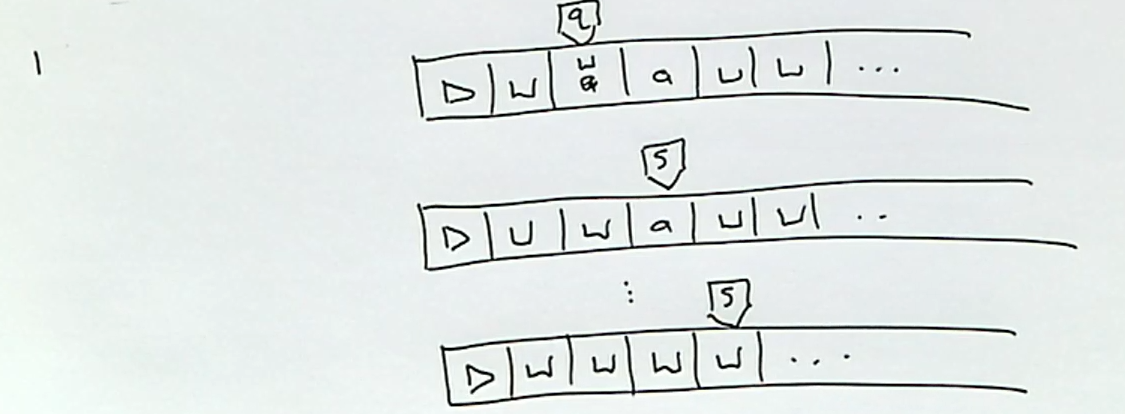 1
q
▷ ⊔ ⊔ a ⊔ ⊔ ...
s
▷ ⊔ ⊔ a ⊔ ⊔ ..
⋮
s
▷ ⊔ ⊔ ⊔ ⊔ ...